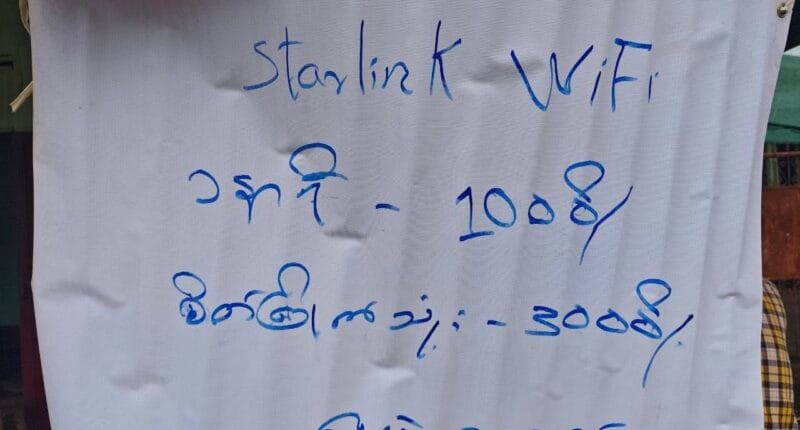 Starlink WiFi
၁နာရီ - 1000ိ/
စိတ်ကြိုက်သုံး - 3000ိ/